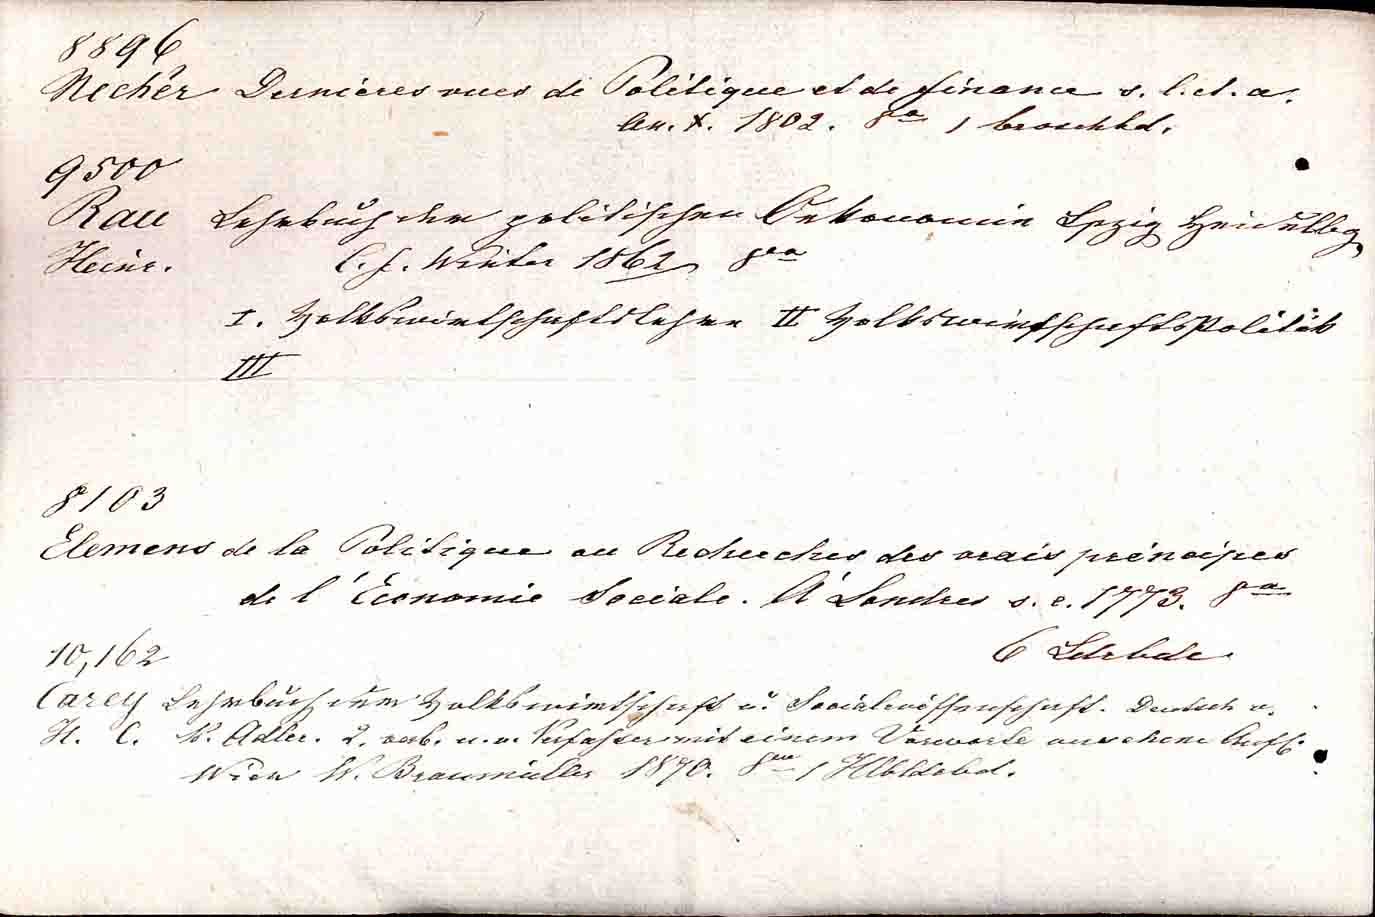 8896
Necker Dernières vues de Politique et de finance s. l. et. a.
An. X. 1802. 8º 1 broschbd.
9500
Rau Lehrbuch der politischen Oekonomie Lpzig Heidelbg
Heinr. C. f. Winter 1862 8vo
I. Volkswirtschaftslehre II Volkswirtschaftspolitik
III
8103
Elemens de la Politique ou Recherches des vrais principes
de l'Économie Sociale. À Londres s. e. 1773. 8º
6 Ldrbde
10,162
Carey Lehrbuch der Volkswirtschaft u. Socialwissenschaft. Deutsch v.
H. C. K. Adler. 2. verb. u. v. Verfasser mit einem Vorworte versehene Aufl.
Wien W. Braumüller 1870. 8vo 1 Hlbldrbd.